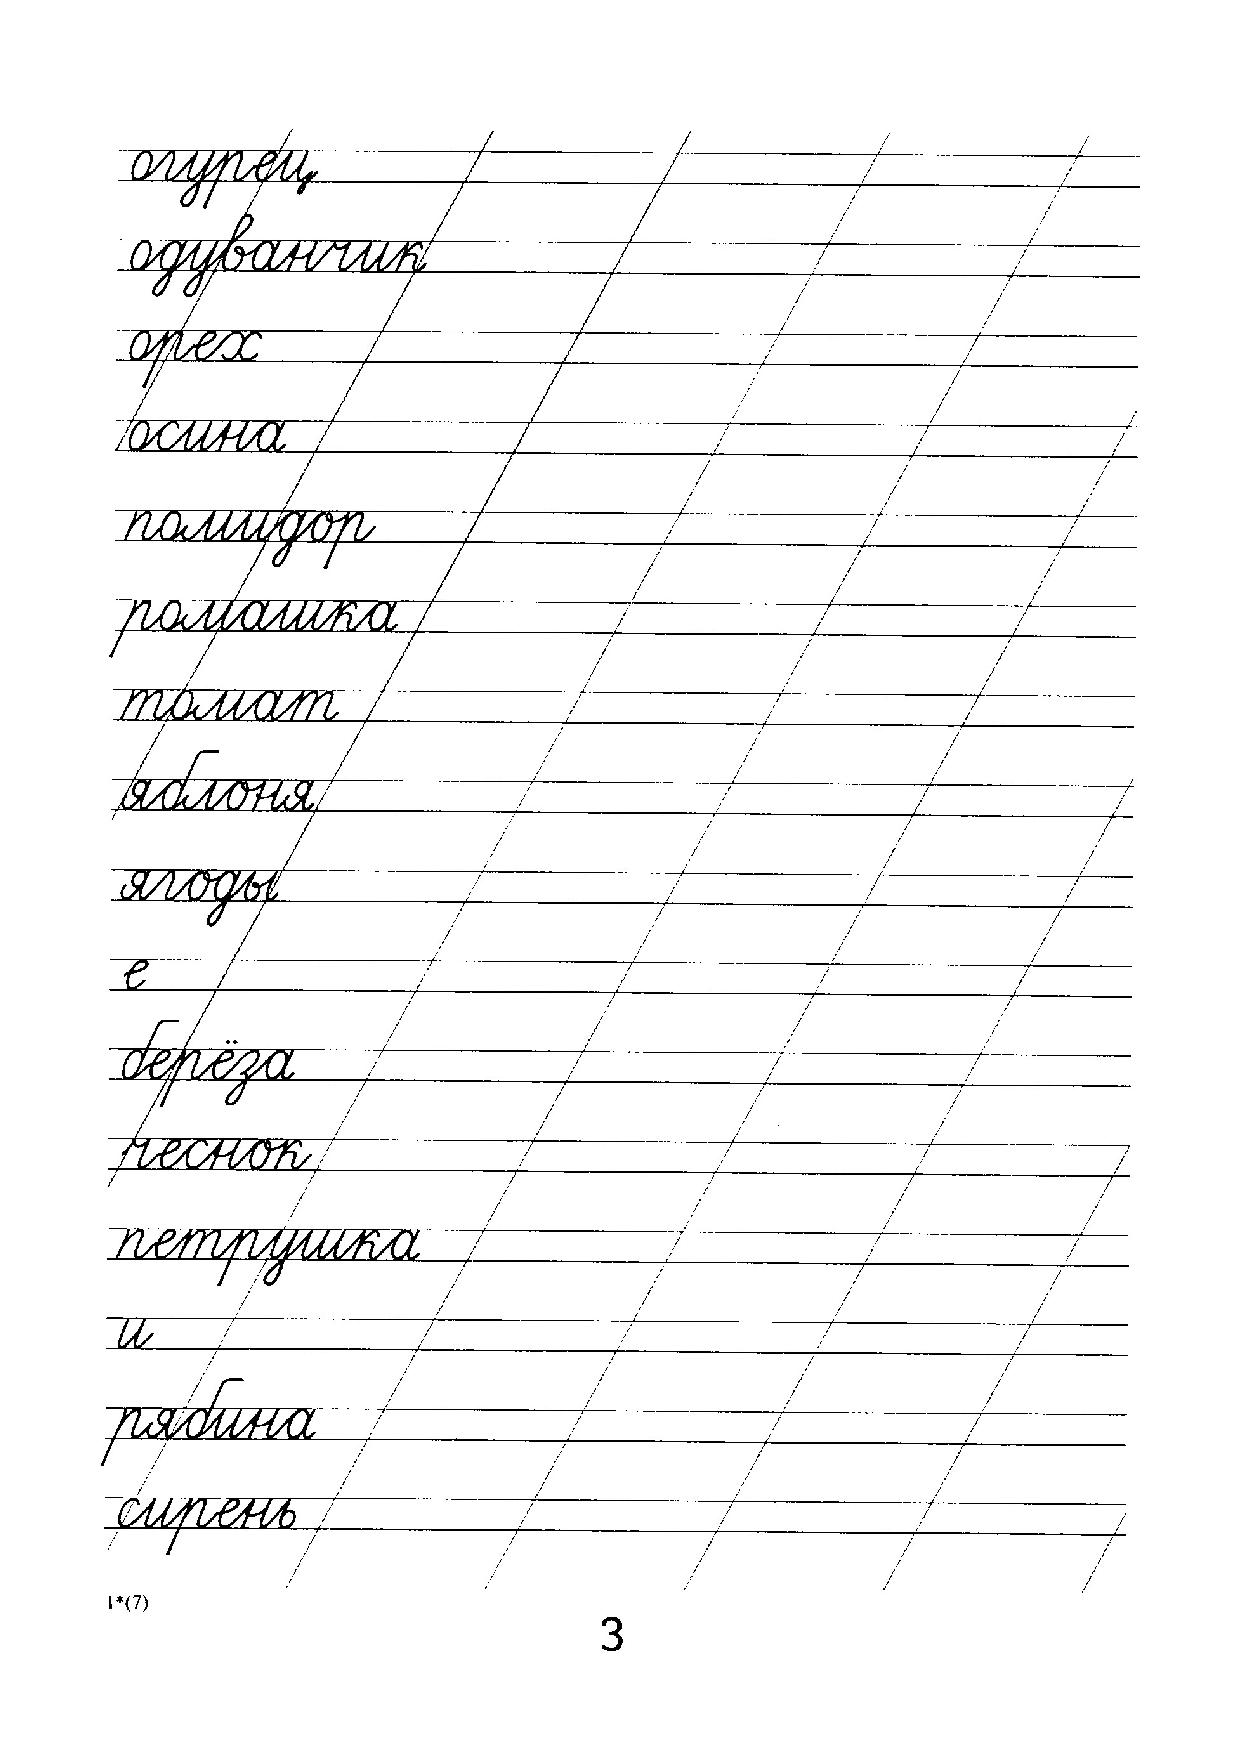 огурец
одуванчик
орех
осина
помидор
ромашка
томат
яблоня
ягоды
е
берёза
чеснок
петрушка
и
рябина
сирень
1*(7)
3